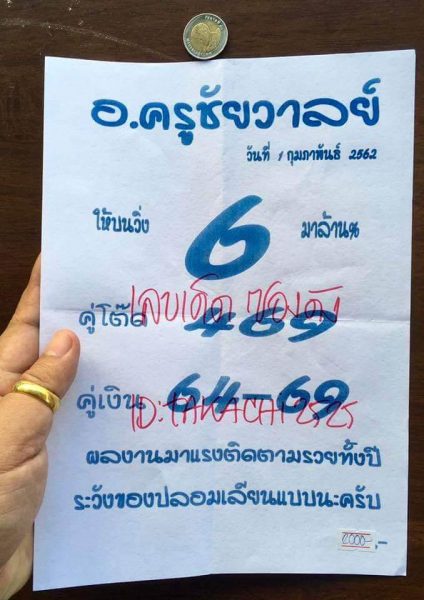 อ.ครูชัยวาลย์
วันที่ 1 กุมภาพันธ์ 2562
ให้บนวิ่ง 6 มาล้าน%
เลขเด็ด ซองดัง
คู่โต๊ด 469
คู่เงิน 64-69
ID:TAKACHI2525
ผลงานมาแรงติดตามรวยทั้งปี
ระวังของปลอมเลียนแบบนะครับ
2000.-